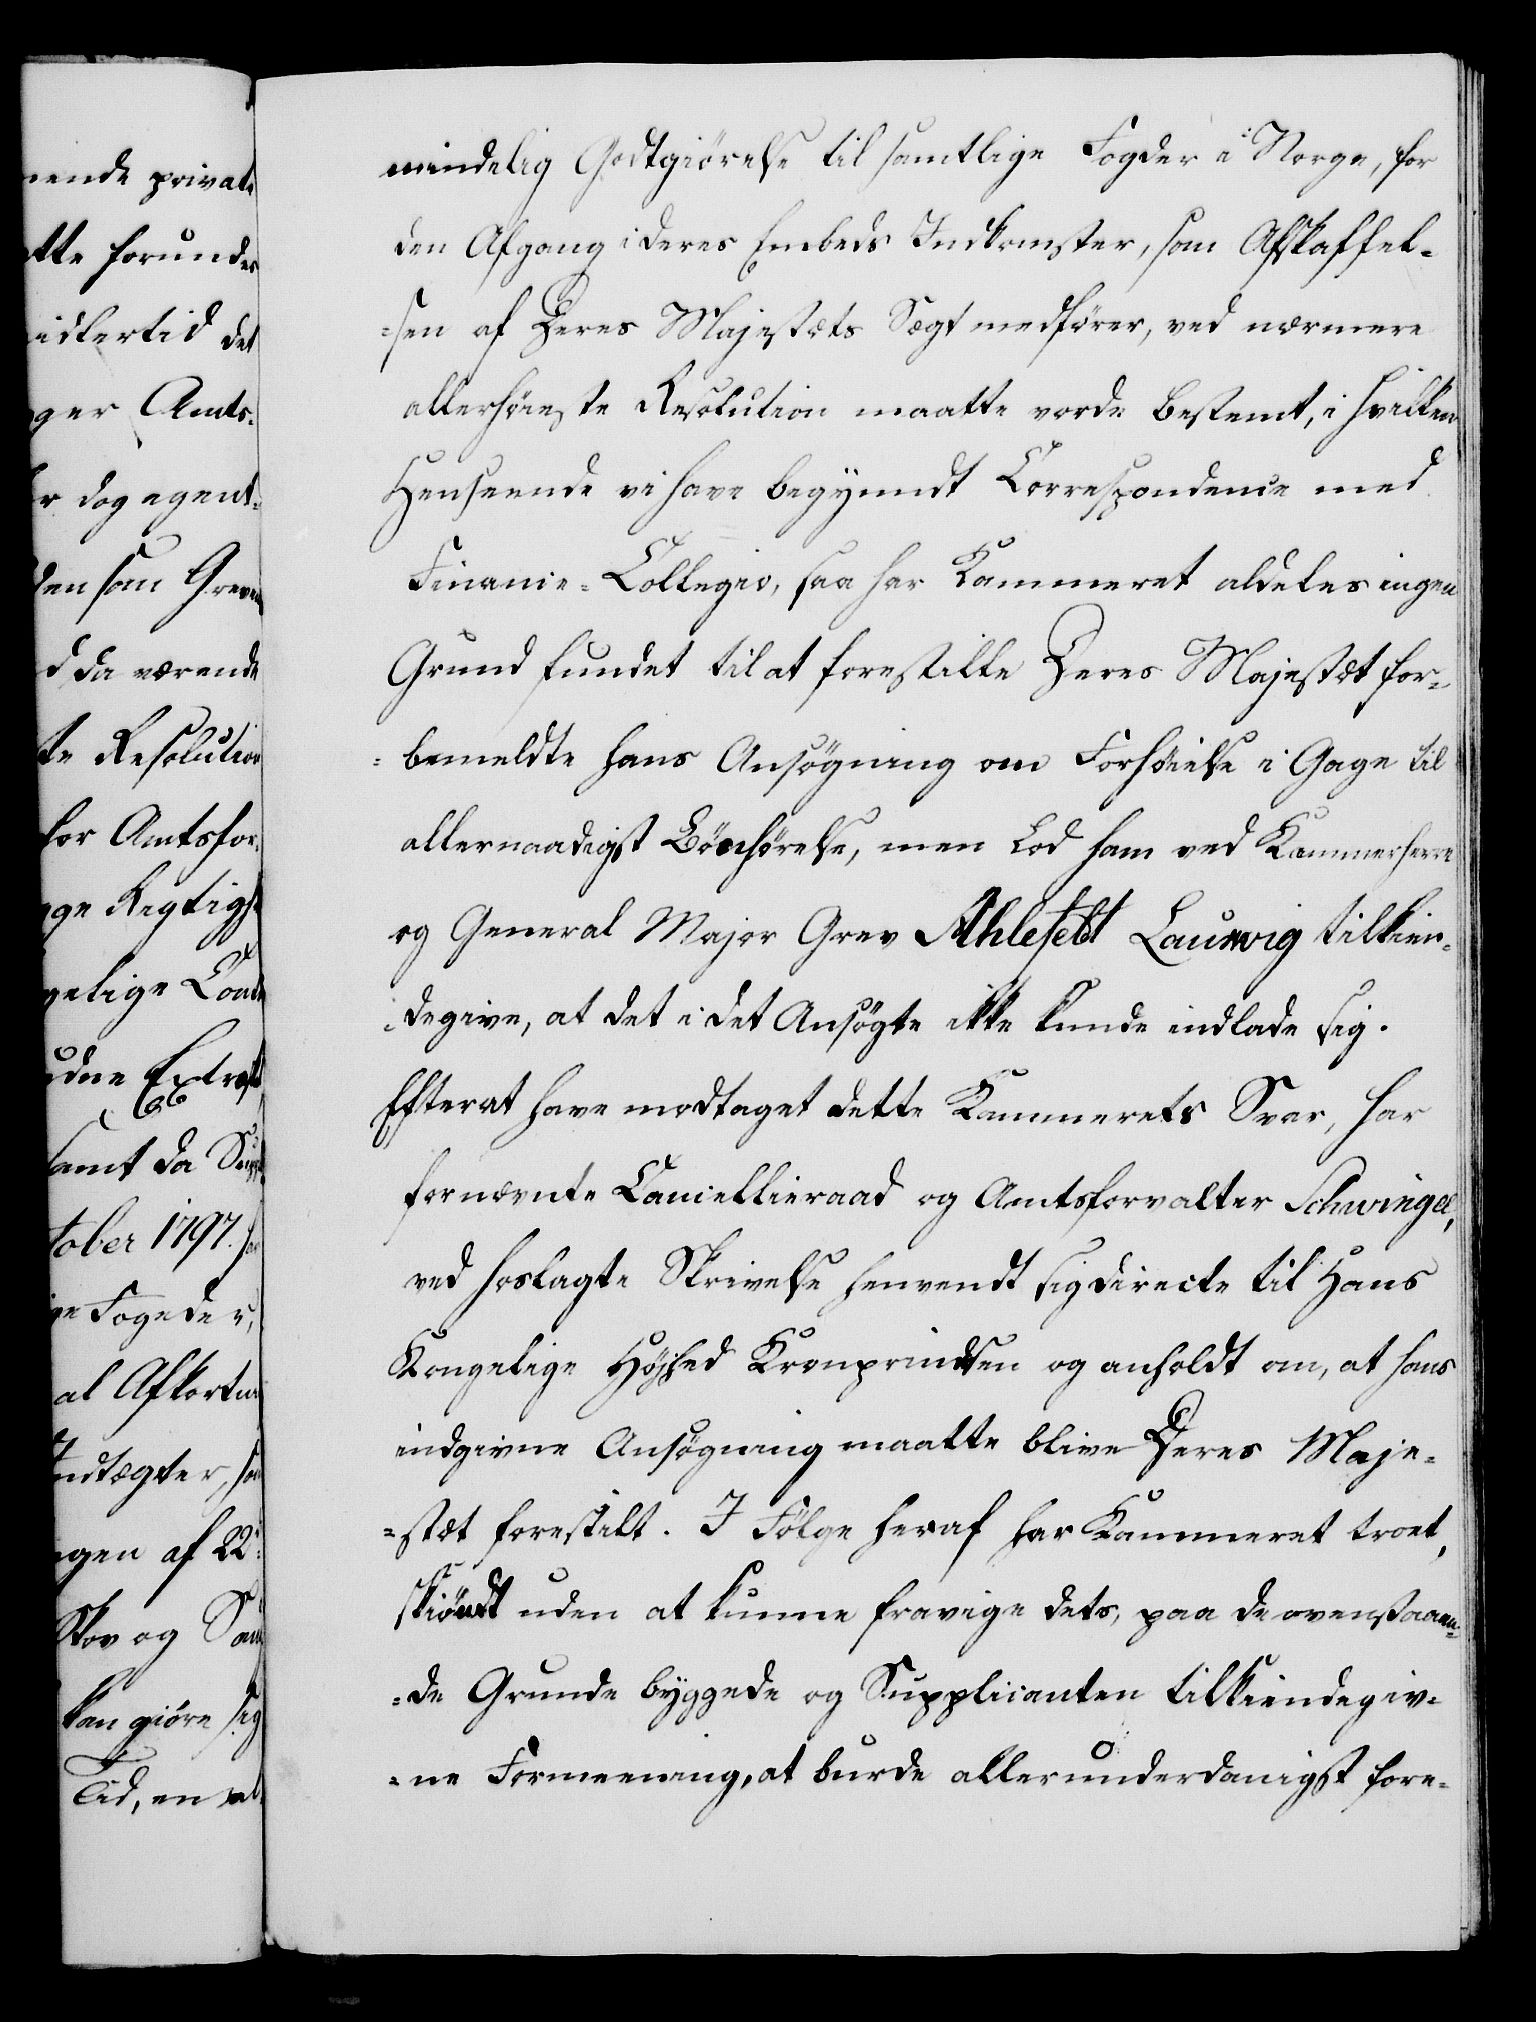 nende private
atte forundes
idlertid det
ger Amts-
r dog egent-
den som Greven
d da værende
te Resolution
for Amtsfor-
ge Rigtigh
gelige Cont
udne Extract
samt da Sup
tober 1797. har
ge Fogeder,
al Afkortn
Indtægter, som
gen af 22:
Skov og Sau
kan giøre sig
Tid, en al-
mindelig Godtgiörelse til samtlige Fogder i Norge, for
den Afgang i deres Embeds Indkomster, som Afskaffel-
-sen af Deres Majestæts Sægt medförer, ved nærmere
allerhöieste Resolution maatte vorde bestemt, i hvilken
Henseende vi have begyndt Correspondence med
Finance-Collegio, saa har Kammeret aldeles ingen
Grund fundet til at forestille Deres Majestæt for-
-bemeldte hans Ansögning om Forhöielse i Gage til
allernaadigst Bönhörelse, men lod ham ved Kammerherre
og General Major Grev Ahlefeldt Laurvig tilkien-
degive, at det i det Ansögte ikke kunde indlade sig.
Efterat have modtaget dette Kammerets Svar, har
fornævnte Cancellieraad og Amtsforvalter Schwingel,
ved hoslagte Skrivelse henvendt sig directe til Hans
Kongelige Höjhed Kronprindsen og anholdt om, at hans
indgivne Ansögning maatte blive Deres Maje-
-stæt forestilt. I Fölge heraf har Kammeret troet,
skiöndt uden at kunne fravige dets, paa de ovenstaaen-
-de Grunde byggede og Supplicanten tilkiendegiv-
-ne Formeening, at burde allerunderdanigst fore-